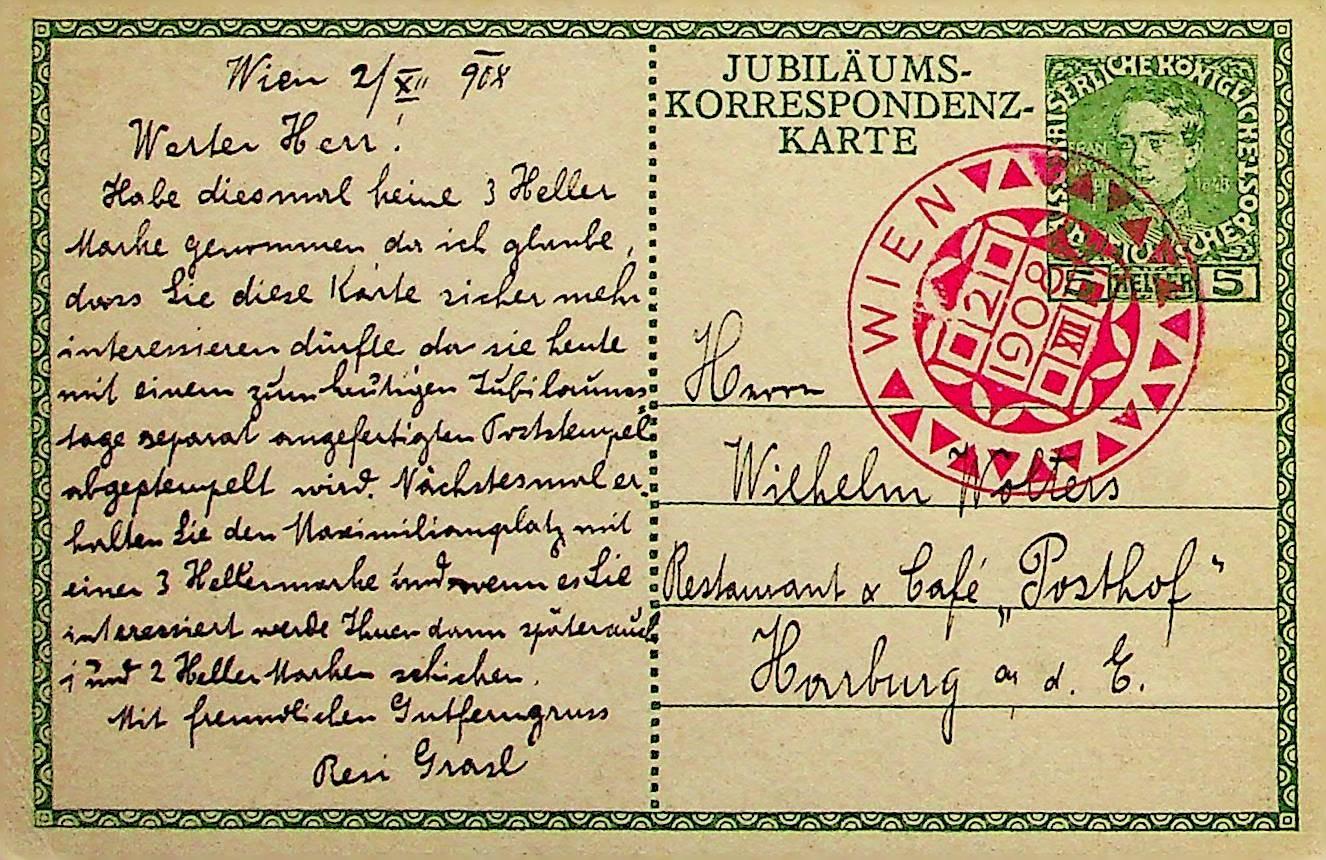 Wien 2/XII 908
Werter Herr!
Habe diesmal keine 3 Heller
Marke genommen da ich glaube,
dass Sie diese Karte sicher mehr
interessieren dürfte da sie heute
mit einem zum heutigen Jubiläums-
tage separat angefertigten Poststempel
abgestempelt wird. Nächstesmal er-
halten Sie den Maximilianplatz mit
einer 3 Hellermarke und wenn es Sie
interessiert werde Ihnen dann später auch
1 und 2 Heller Marken schicken.
Mit freundlichen Gutferngruss
Resi Grasl
JUBILÄUMS-
KORRESPONDENZ-
KARTE
KAISERLICHE KÖNIGLICHE ÖSTERR
1848
5 HELLER 5
WIEN
2 XII
1908
Herrn
Wilhelm Wolters
Restaurant & Café „Posthof“
Harburg a. d. E.